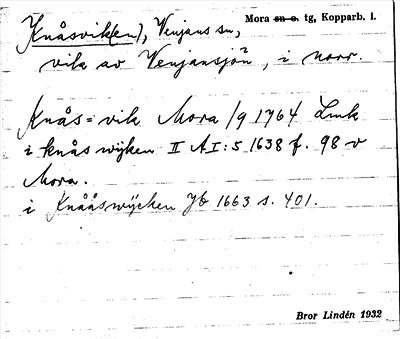 Mora sn o. tg, Kopparb. l.
Knåsvik(en), Venjans sn,
vik av Venjansjön, i norr.
Knås=vik Mora /9 1764 Lmk
i knås wijken II A I:5 1638 f. 98 v
Mora.
i Knååswijcken Jb 1663 s. 401.
Bror Lindén 1932